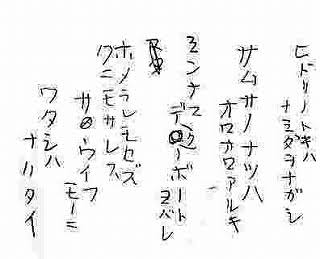 ヒドリノトキハ
ナミダヲナガシ
サムサノナツハ
オロオロアルキ
ミンナニ
デクノボート
ヨバレ
ホメラレモセズ
クニモサレズ
サウイフ
モノニ
ワタシハ
ナリタイ